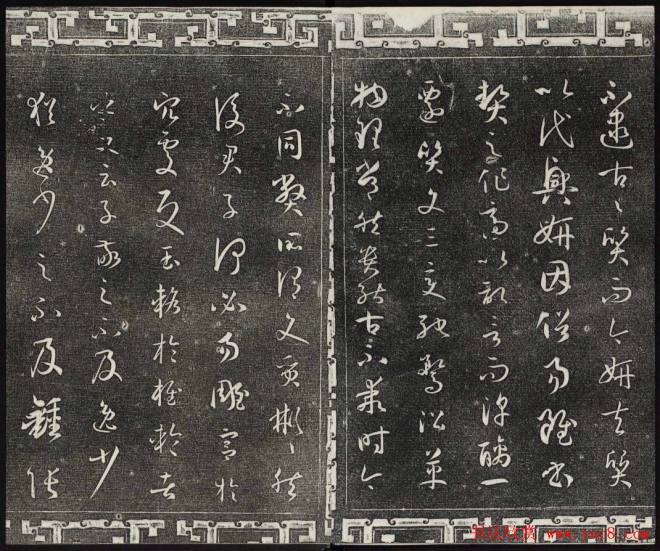 不逮古々質而今妍夫質
以代興妍因俗易雖書
契之作適以記言而淳醨一
遷質文三變馳騖沿革
物理常然貴能古不乖時今
不同弊所謂文質彬々然
後君子何必易雕宮於
穴處反玉輅於椎輪者
乎又云子敬之不及逸少
猶逸少之不及鍾張
书法欣赏 www.yac8.com